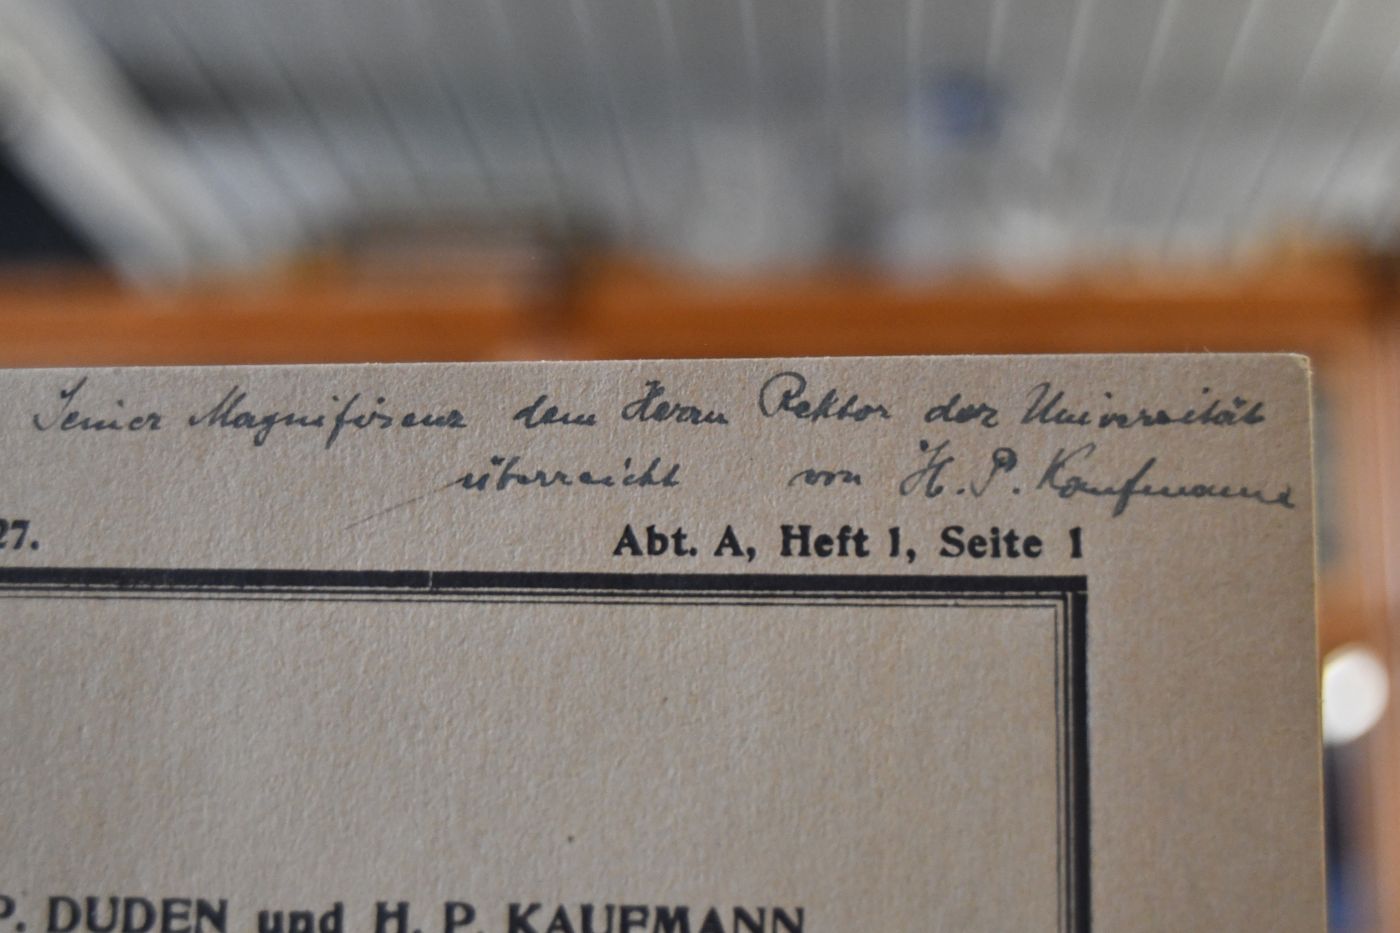 Seiner Magnifizenz dem Herrn Rektor der Universität
überreicht von H. P. Kaufmann
27. Abt. A, Heft 1, Seite 1
P. DUDEN und H. P. KAUFMANN